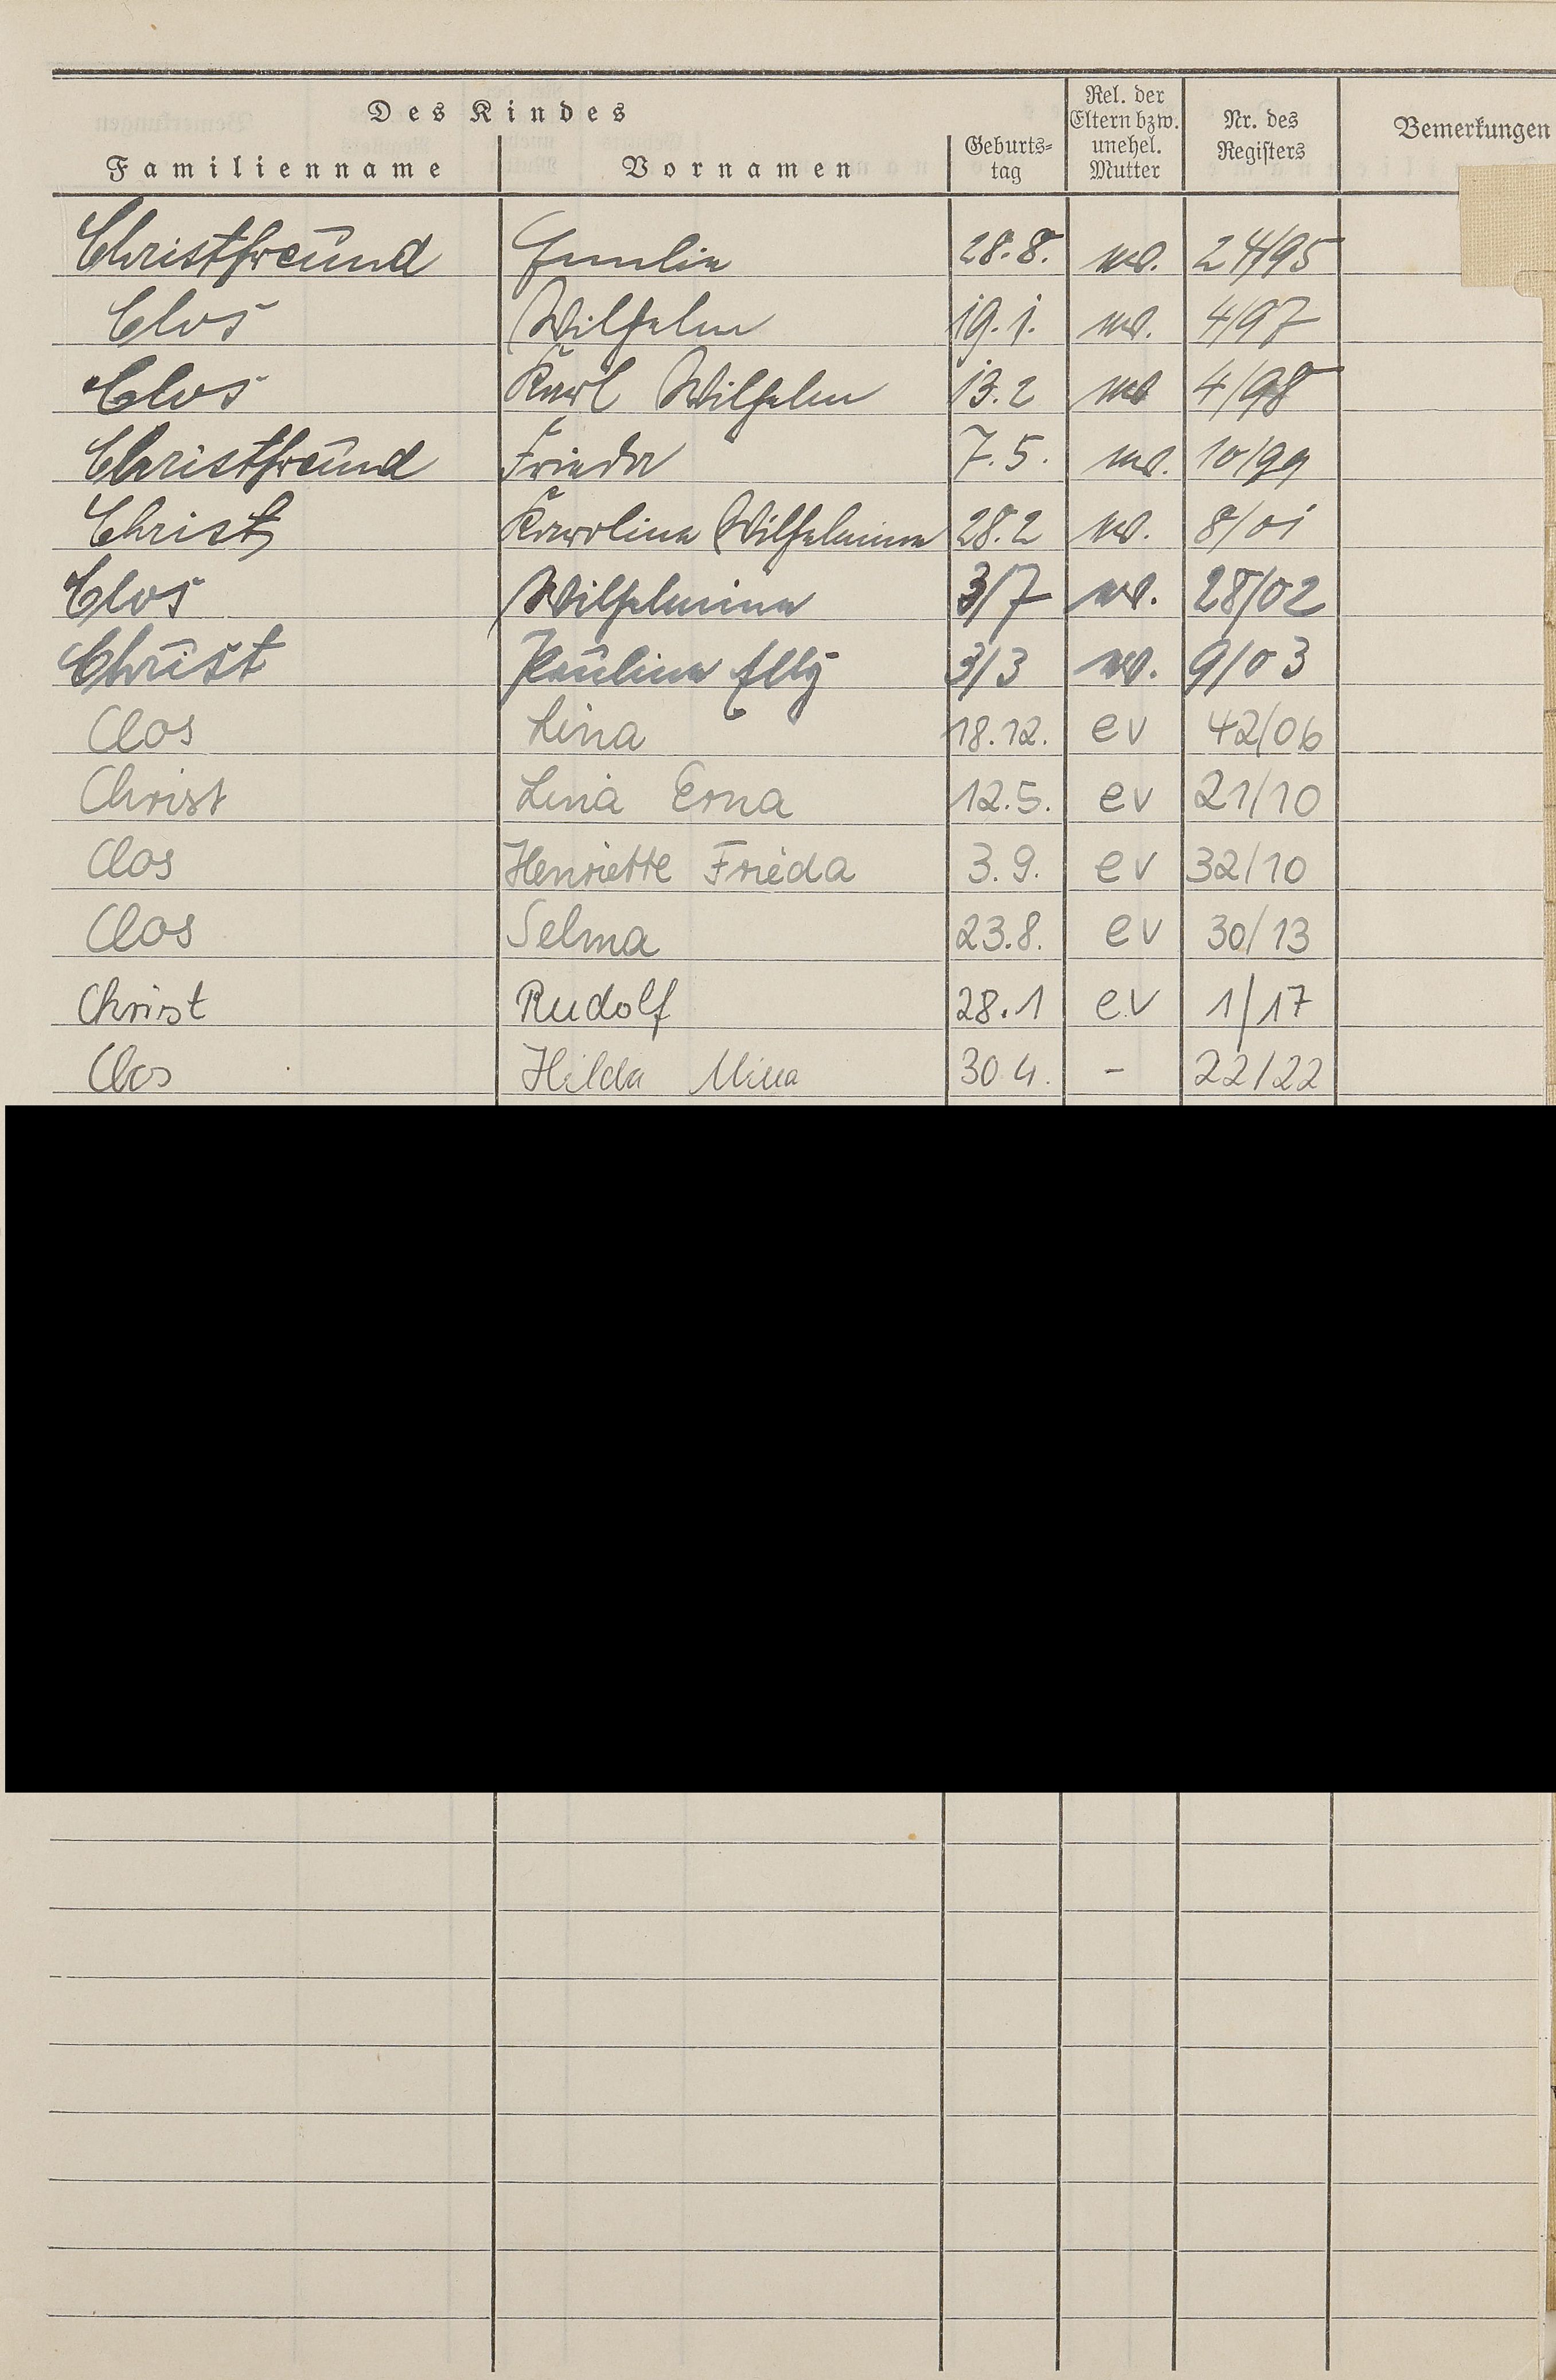 Des Kindes
Familienname Vornamen Geburts-tag Rel. der Eltern bzw. unehel. Mutter Nr. des Registers Bemerkungen
Christfreund Emilie 28.8. ev. 24/95
Clos Wilhelm 19.1. ev. 4/97
Clos Karl Wilhelm 13.2 ev 4/98
Christfreund Frieda 7.5. ev. 10/99
Christ Karoline Wilhelmine 28.2 ev. 8/01
Clos Wilhelmine 3/7 ev. 28/02
Christ Pauline Elly 3/3 ev. 9/03
Clos Lina 18.12. ev 42/06
Christ Lina Erna 12.5. ev 21/10
Clos Henriette Frieda 3.9. ev 32/10
Clos Selma 23.8. ev 30/13
Christ Rudolf 28.1 ev 1/17
Clos Hilda Mina 30.4. - 22/22